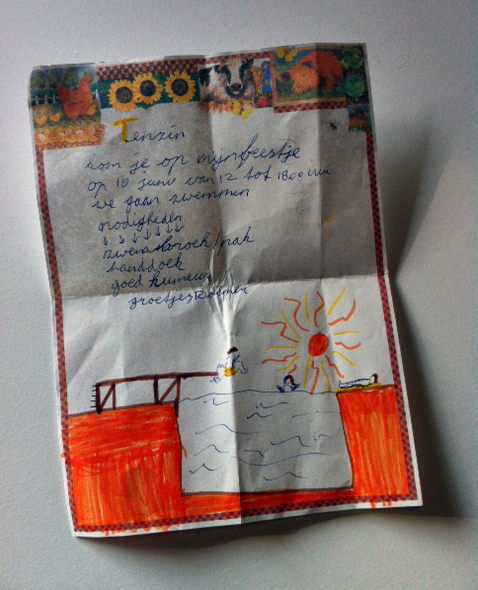 Tenzin
kom je op mijn feestje
op 10 juni van 12 tot 1800 uur
we gaan zwemmen
nodigheden
zwembroek/pak
handdoek
goed humeur
groetjes Roemer